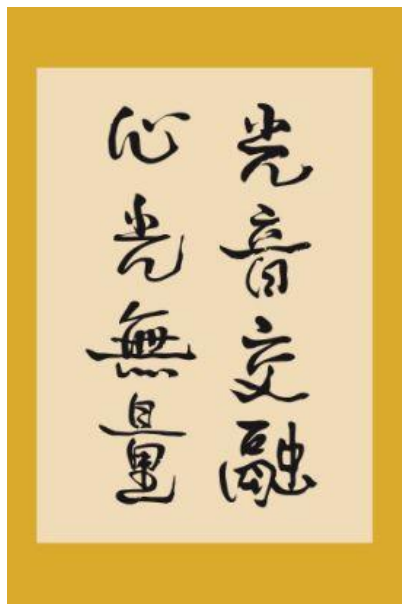 光音交融
心光無量